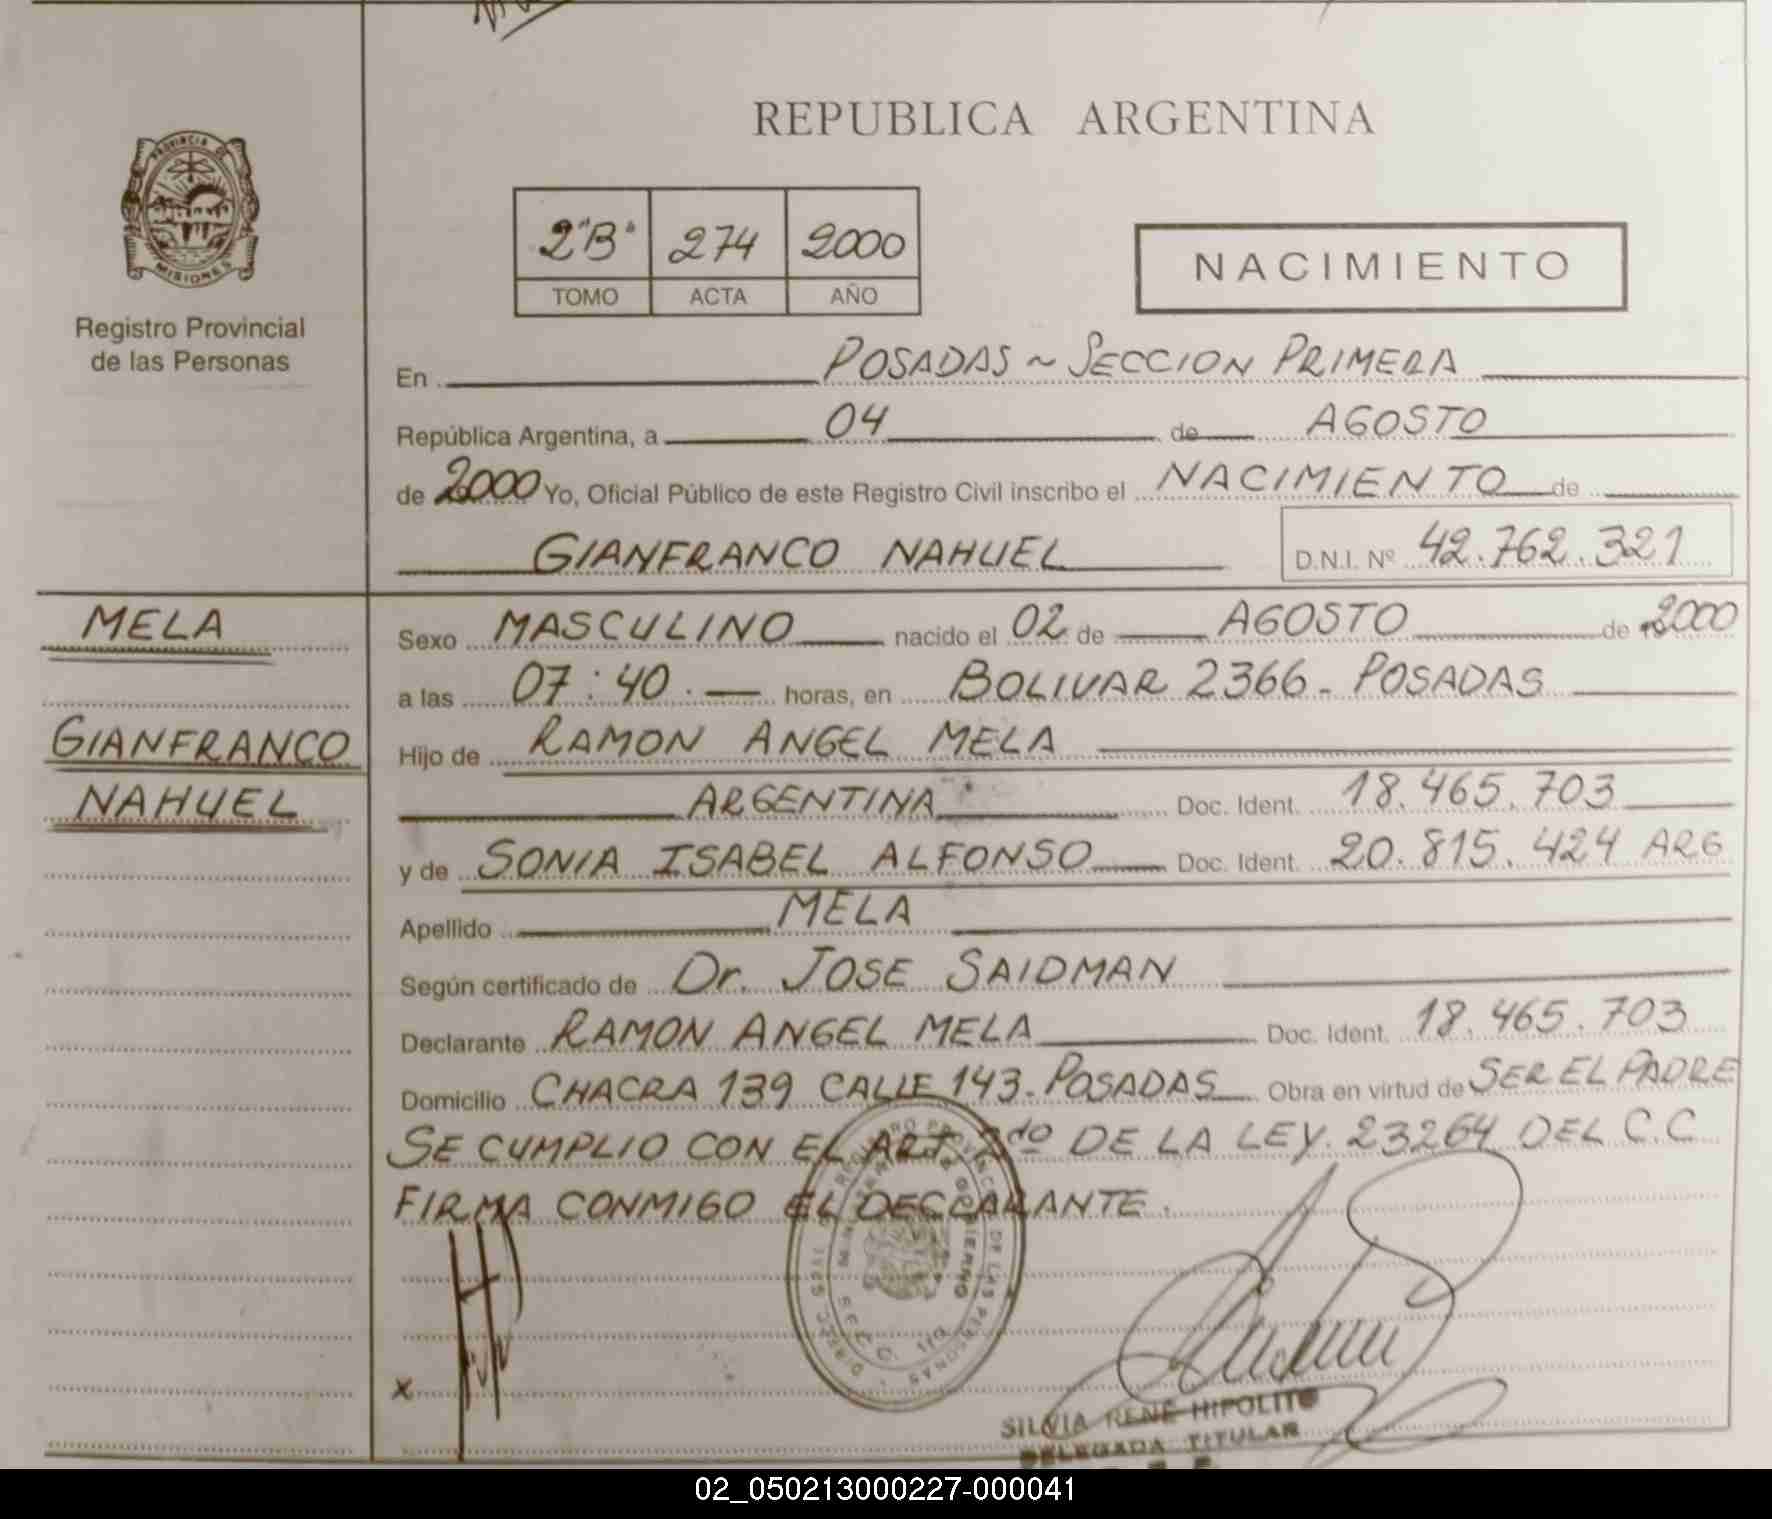 REPUBLICA ARGENTINA
PROVINCIA DE
MISIONES
Registro Provincial
de las Personas
2"B" 274 2000
TOMO ACTA AÑO
NACIMIENTO
En POSADAS ~ SECCION PRIMERA
República Argentina, a 04 de AGOSTO
de 2000 Yo, Oficial Público de este Registro Civil inscribo el NACIMIENTO de
GIANFRANCO NAHUEL D.N.I. Nº 42.762.321
MELA
GIANFRANCO
NAHUEL
Sexo MASCULINO nacido el 02 de AGOSTO de 2000
a las 07:40. horas, en BOLIVAR 2366 - POSADAS
Hijo de RAMON ANGEL MELA
ARGENTINA Doc. Ident. 18.465.703
y de SONIA ISABEL ALFONSO Doc. Ident. 20.815.424 ARG
Apellido MELA
Según certificado de Dr. JOSE SAIDMAN
Declarante RAMON ANGEL MELA Doc. Ident. 18.465.703
Domicilio CHACRA 139 CALLE 143-POSADAS Obra en virtud de SER EL PADRE
SE CUMPLIO CON EL ART. 2do DE LA LEY. 23264 DEL C.C
FIRMA CONMIGO EL DECLARANTE.
x
SILVIA RENE HIPOLITO
DELEGADA TITULAR
02_050213000227-000041